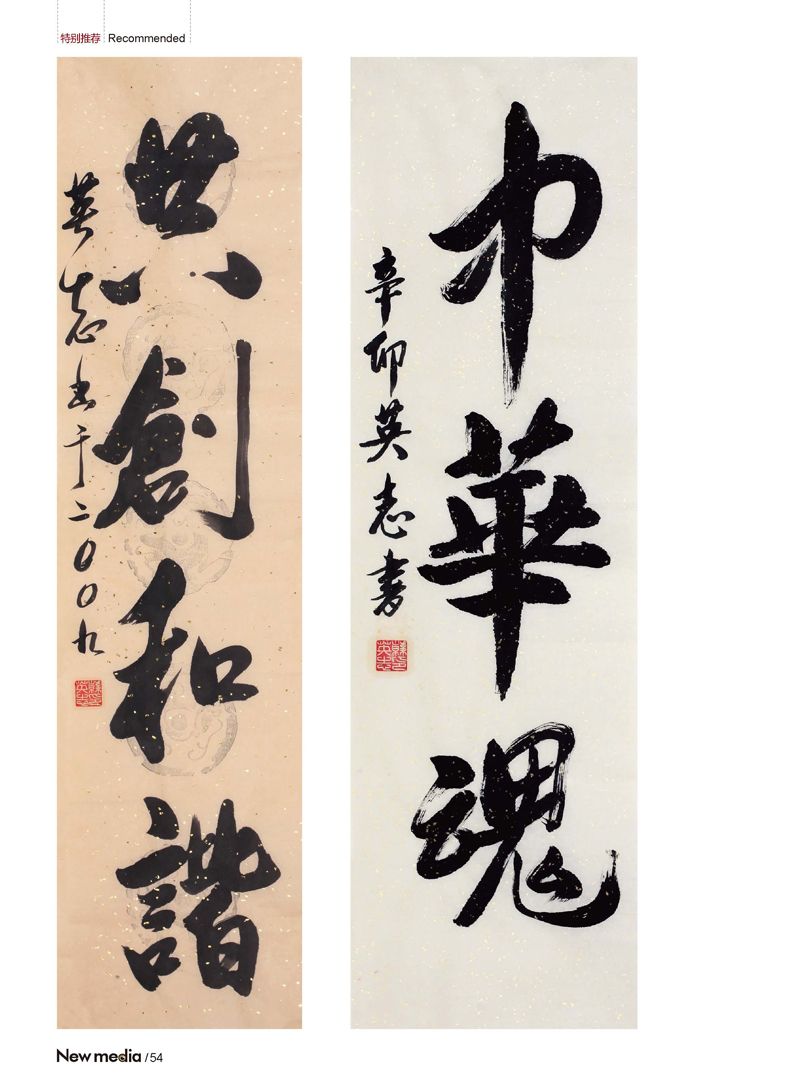 特别推荐 Recommended
共創和諧
英志书于二〇〇九
中華魂
辛卯英志書
New media / 54